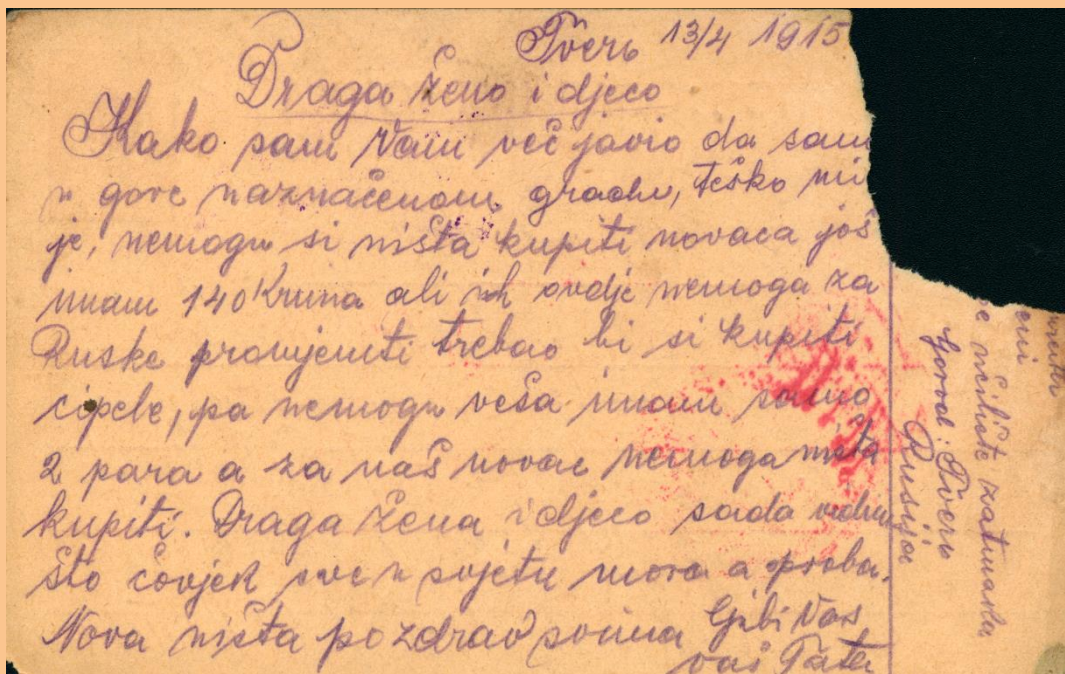 Tver 13/4 1915
Draga ženo i djeco
Kako sam Vam več javio da sam
u gore naznačenom gradu, teško mi
je, nemogu si ništa kupiti novaca još
imam 140 Kruna ali ih ovdje nemoga za
Ruske promjeniti trebao bi si kupiti
cipele, pa nemogu veša imam samo
2 para a za naš novac nemoga ništa
kupiti. Draga žena i djeco sada vidim
što čovjek sve u svjetu mora a proba.
Nova ništa pozdrav svima ljubi Vas
vaš Tata
Gorod: Tver
Rusija